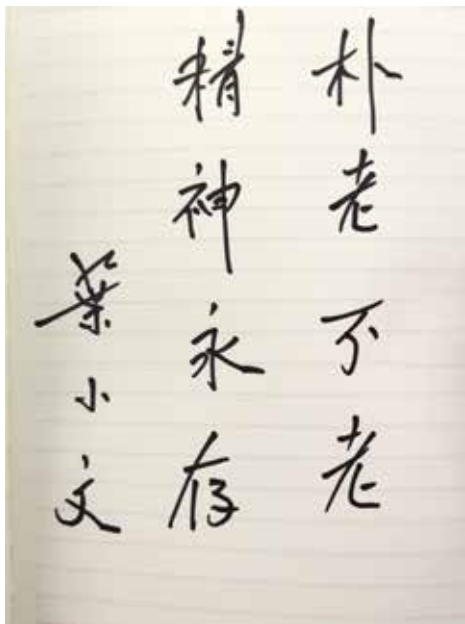 朴老不老
精神永存
葉小文